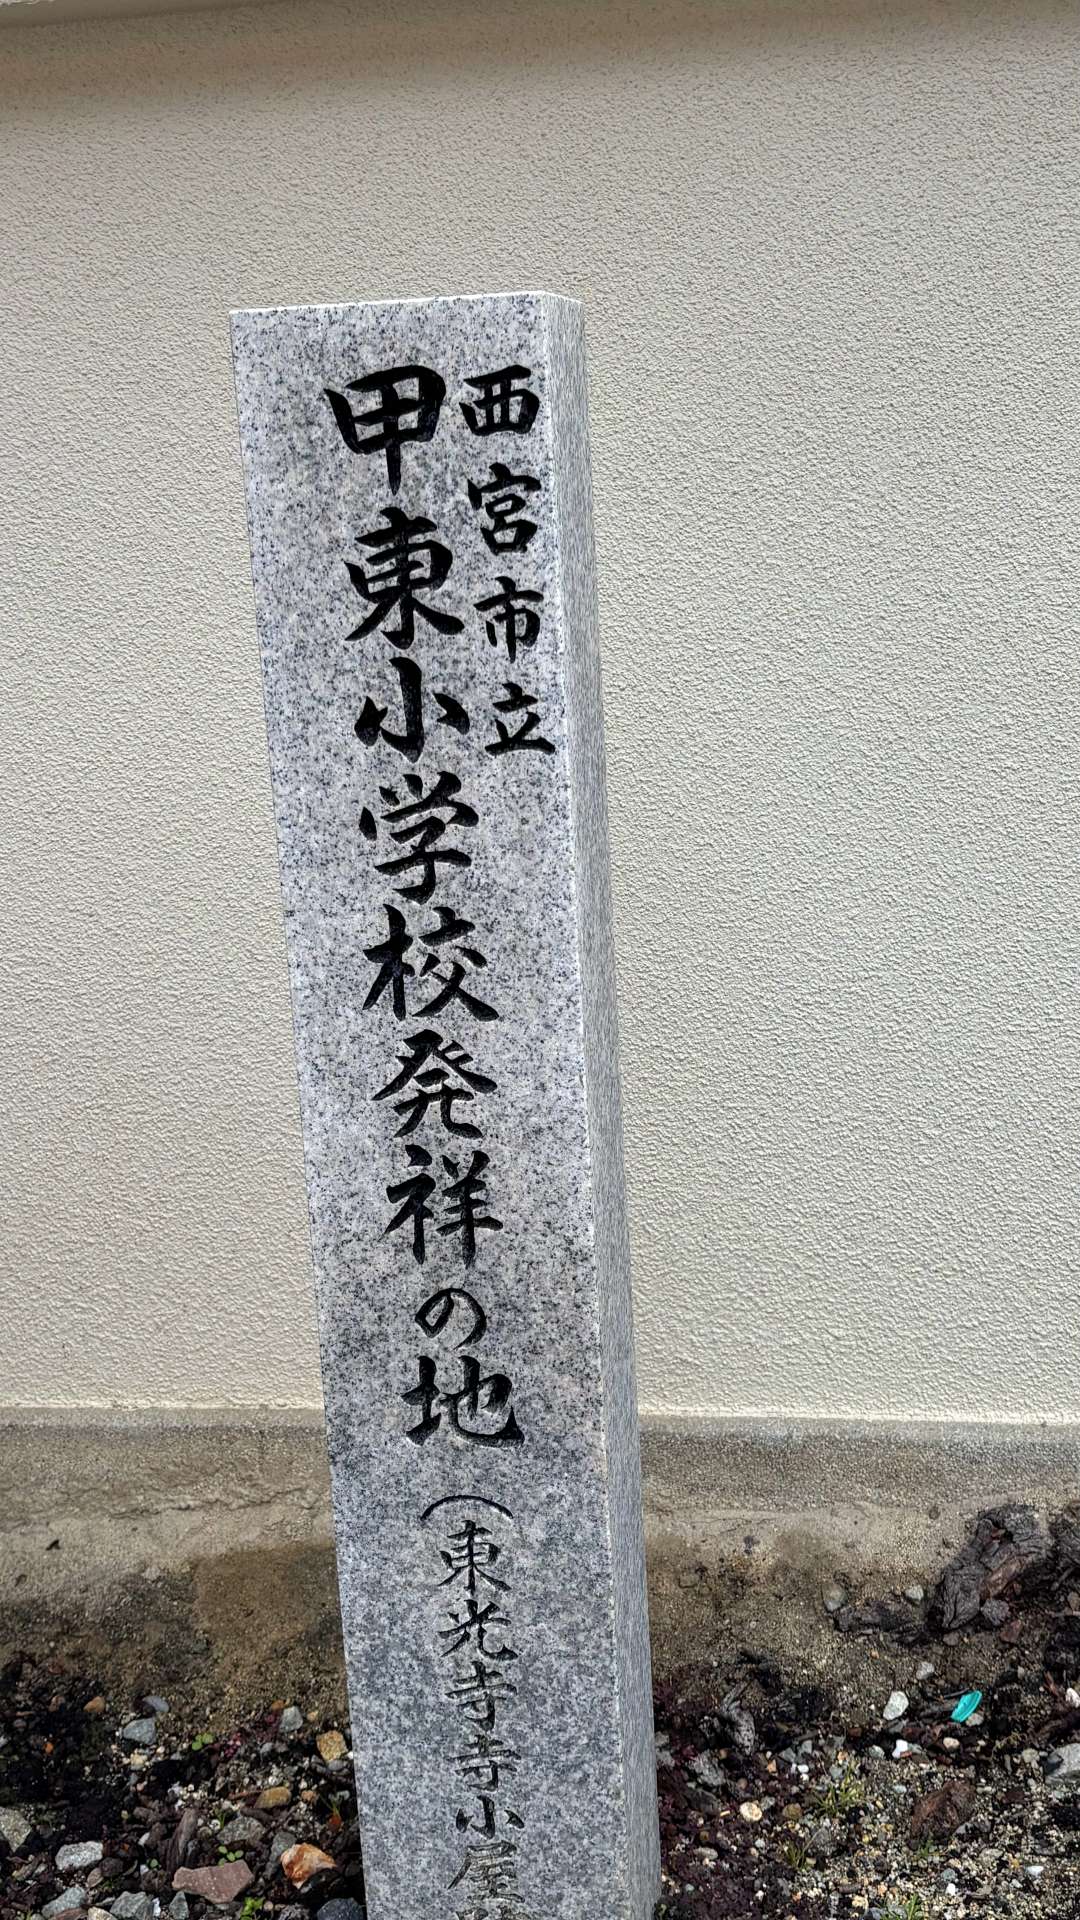 西宮市立
甲東小学校発祥の地(東光寺寺小屋